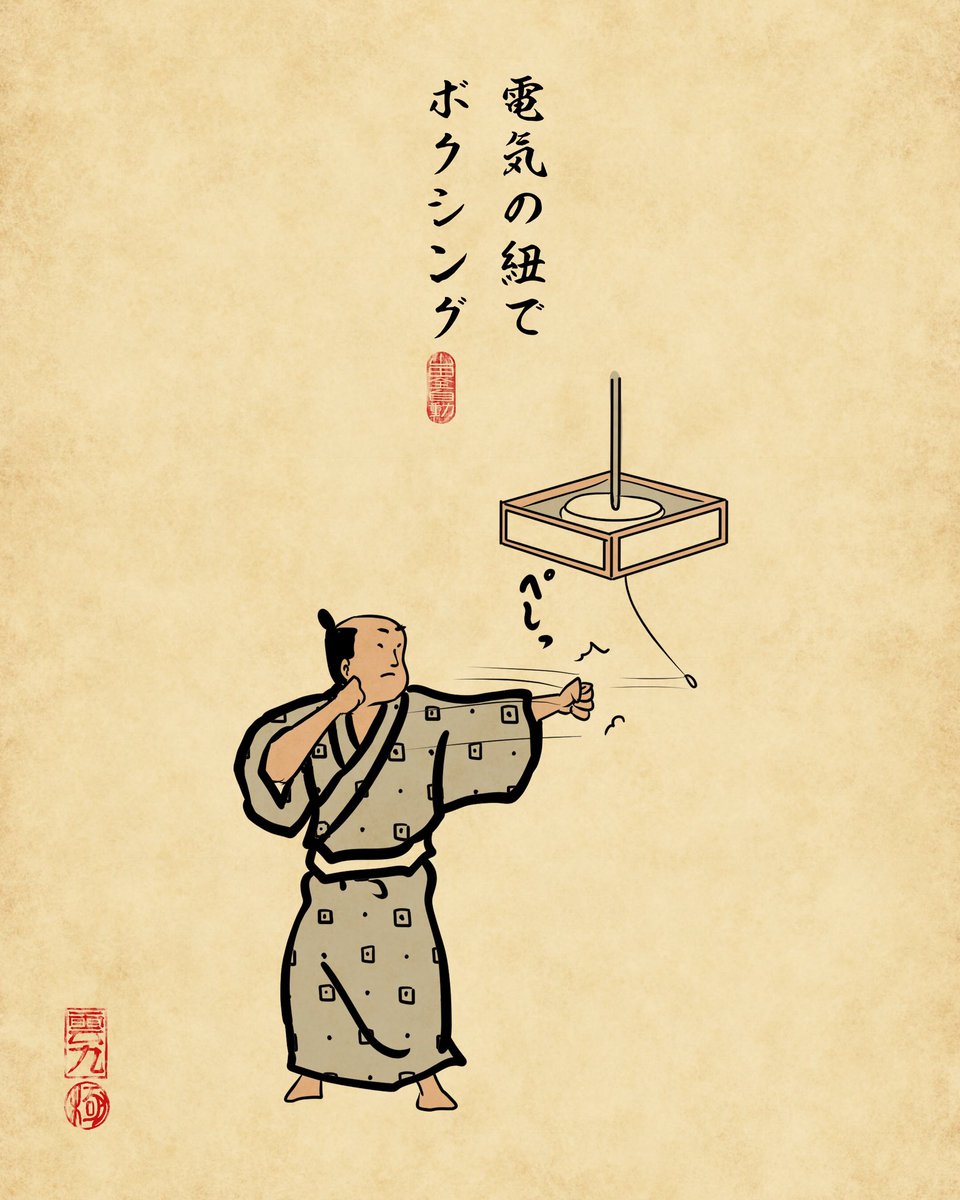 電気の紐で
ボクシング
ぺしっ